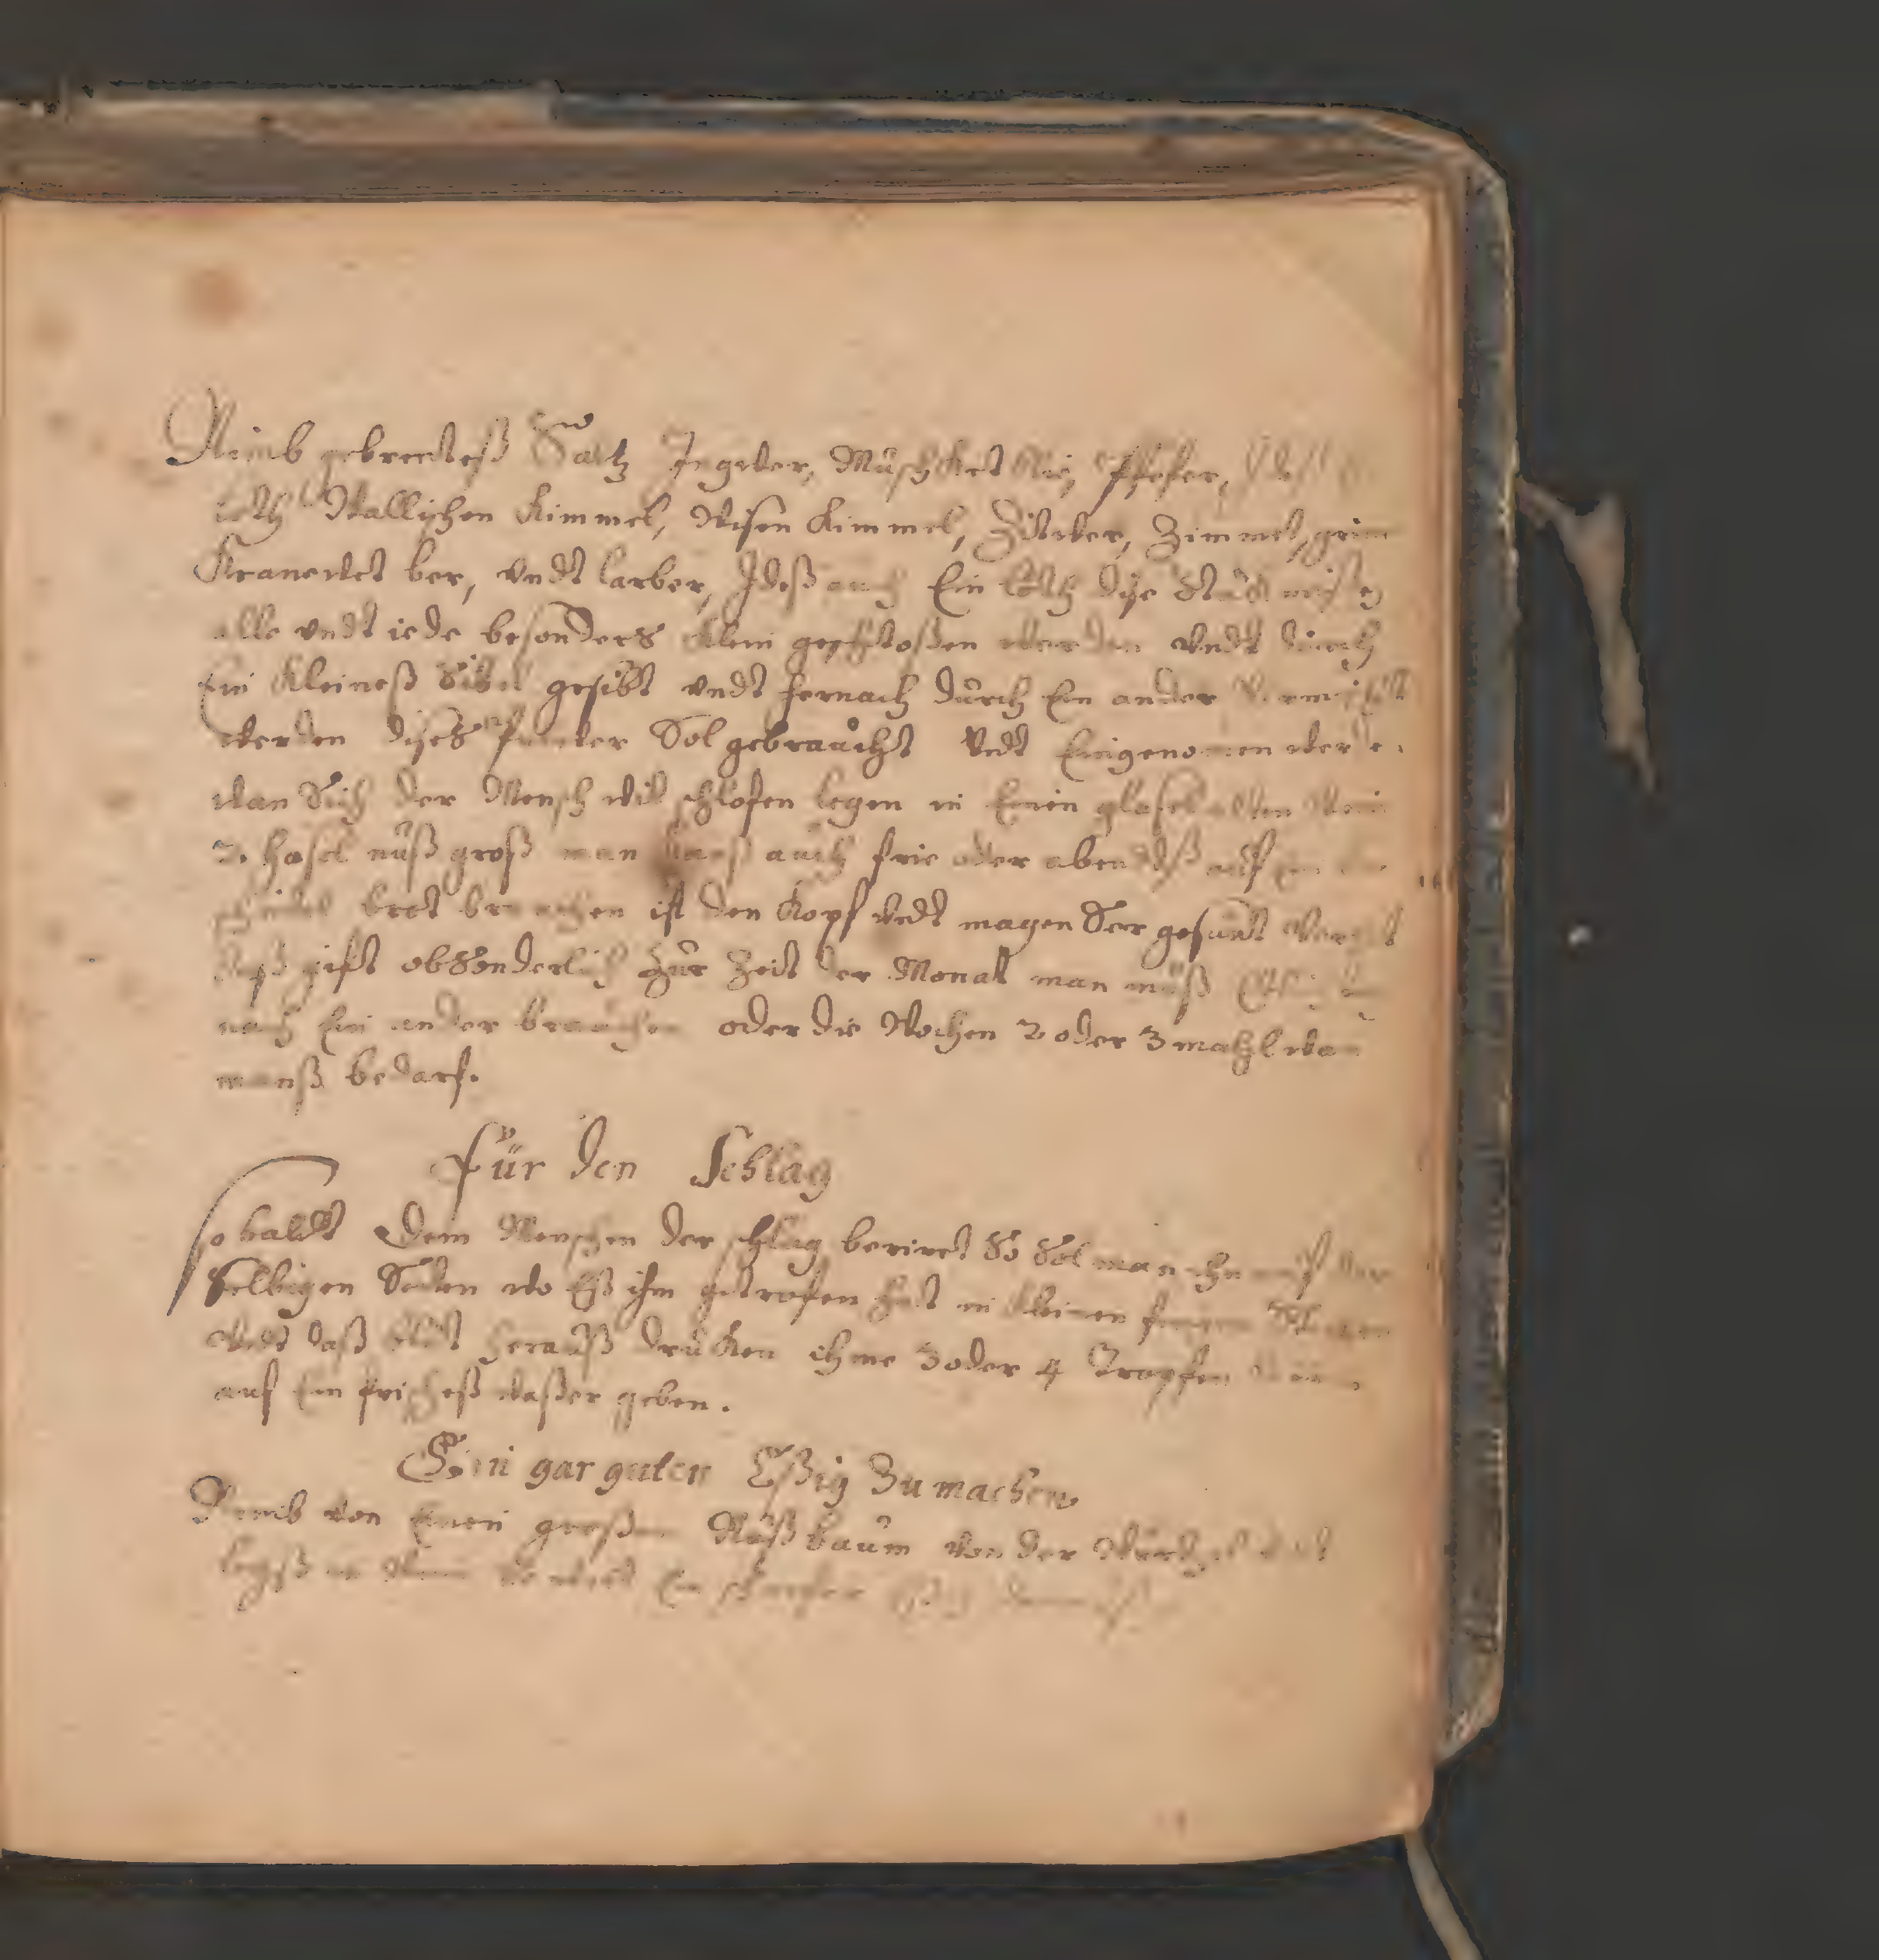 Nimb gebrenteß Saltz Ingwer, Muschket Nus, Pfefer,
loth Wallischen Kimmel, Wisen Kimmel, Zitwer, Zimmet,
Kranewet ber, vndt larber, Jdeß auch Ein loth dise Stuck
alle vndt iede besonders Klein gestoßen werden vndt durch
Ein Kleineß Sibel gesibt vndt hernach durch Ein ander Vermischt
werden dises Pulver Sol gebraucht vndt Eingenomen werden
wan Sich der Mensch wil schlofen legen in Einen glasel alten Wein
2. hasel nuß groß man kanß auch frie oder abendtß auf
bret brauchen ist den Kopf vndt magen Ser gesundt
daß gift obsonderlich Zur Zeit der Monat man muß
nach Ein ander brauchen oder die Wochen 2 oder 3 mahl wan
manß bedarf.
Für den Schlag
so baldt Dem Menschen der schlag beriret So Sol man ihn auf der
Selbigen Seiten wo Eß ihm getrofen hat in Kleinen finger
vndt daß blut herauß druken ihme 3 oder 4 Tropfen
auf Ein frischeß waßer geben.
Ein gar guten Eßig Zu machen
Nimb von Einen großen Nußbaum von der Wurtzel
legß in Wein So wird Ein scharfer Eßig